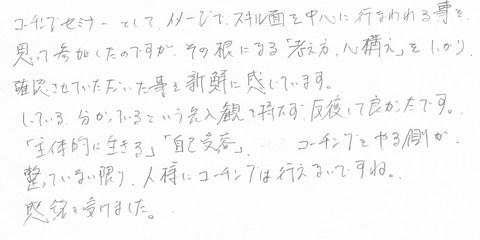 コーチングセミナーとして、イメージで、スキル面を中心に行なわれる事を
思って参加したのですが、その根になる「考え方、心構え」をしっかり
確認させていただいた事を新鮮に感じています。
している、分かっているという先入観を持たず、反復して良かったです。
「主体的に生きる」「自己受容」　コーチングをやる側が
整っていない限り、人様にコーチングは行えないですね。
感銘を受けました。